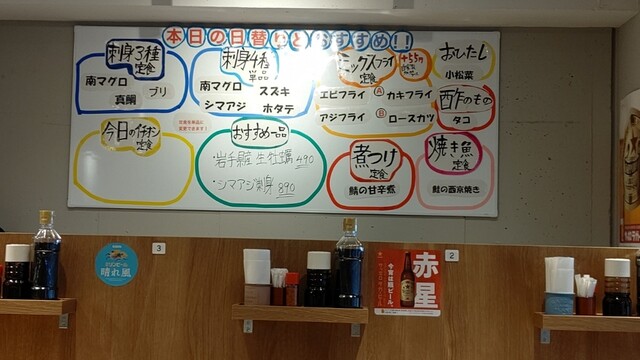 本日の日替りとおすすめ!!
刺身3種
定食
南マグロ
ブリ
真鯛
刺身4種
単品
南マグロ
スズキ
シマアジ
ホタテ
ミックスフライ
定食
+55円
エビフライ
A
カキフライ
アジフライ
B
ロースカツ
おひたし
小松菜
酢のもの
タコ
今日のイチオシ
定食
おすすめ一品
・岩手県産 生牡蠣 490
・シマアジ刺身 890
煮つけ
定食
鯖の甘辛煮
焼き魚
定食
鮭の西京焼き
晴れ風
3
赤星
2